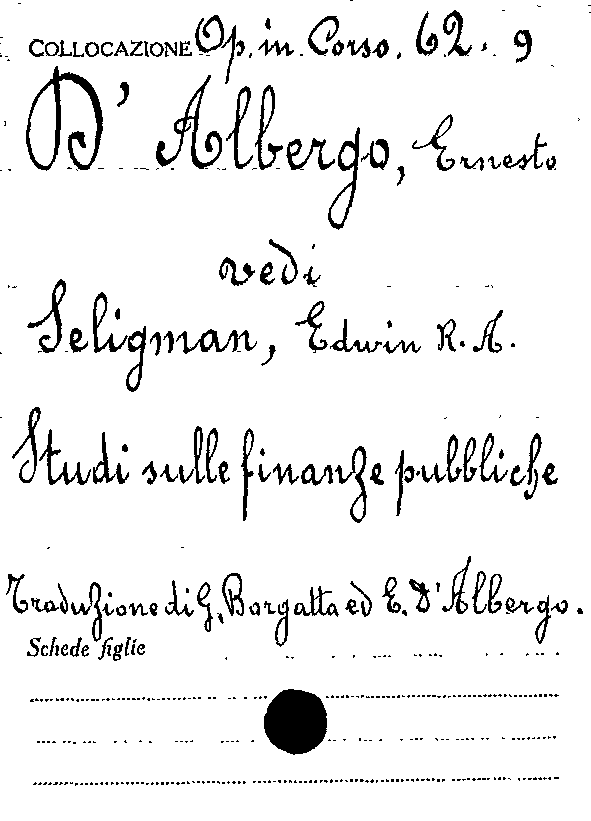 COLLOCAZIONE Op. in Corso. 62. 9
D' Albergo, Ernesto
vedi
Seligman, Edwin R. A.
Studi sulle finanze pubbliche
Traduzione di G. Borgatta ed E. D'Albergo.
Schede figlie